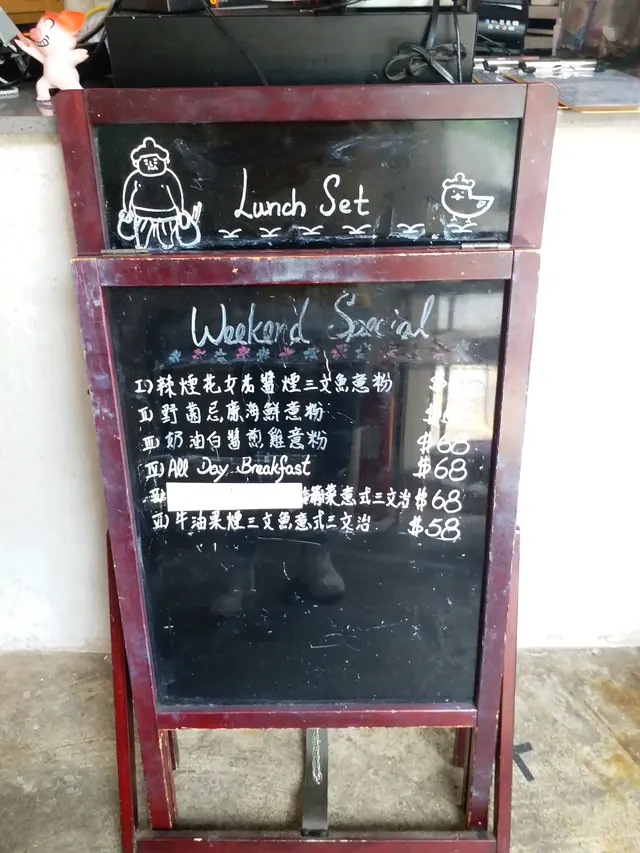 Lunch Set
Weekend Special
I) 辣煙花女茄醬煙三文魚意粉 $
II) 野菌忌廉海鮮意粉 $
III) 奶油白醬煎雞意粉 $68
IV) All Day Breakfast $68
菜意式三文治 $68
VI) 牛油果煙三文魚意式三文治 $58